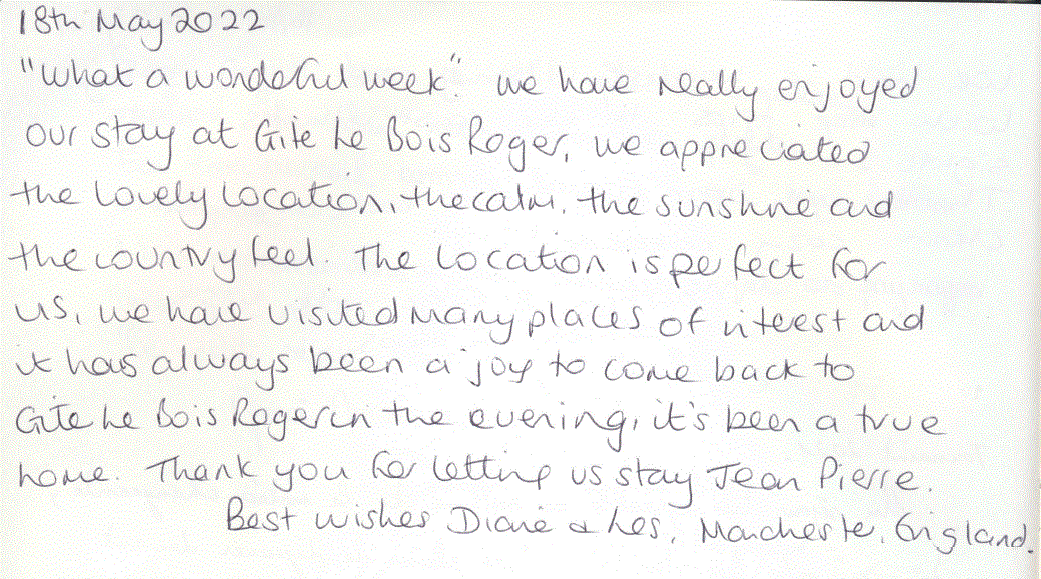 18th May 2022
"What a wonderful week". we have really enjoyed
our stay at Gite Le Bois Roger, we appreciated
the lovely location, the calm, the sunshine and
the country feel. The location is perfect for
us, we have visited many places of interest and
it has always been a joy to come back to
Gite Le Bois Roger in the evening, it's been a true
home. Thank you for letting us stay Jean Pierre.
Best wishes Diane & Les, Manchester, England.